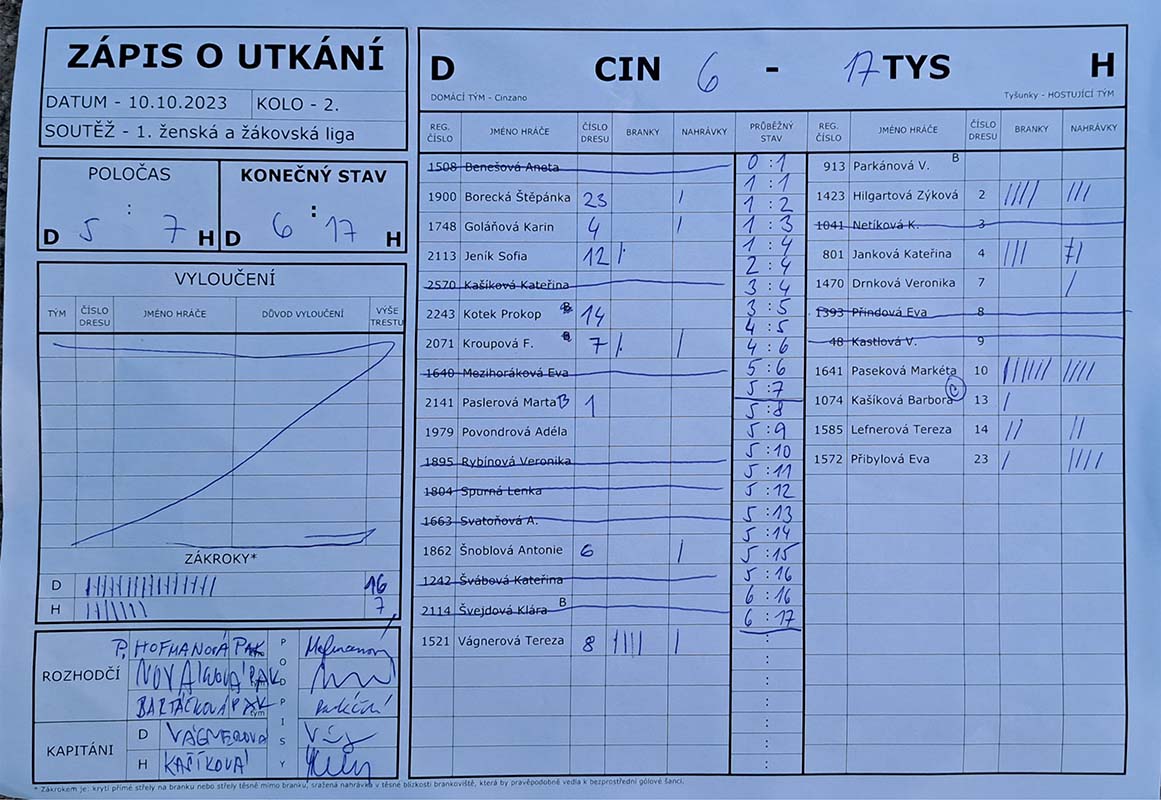 ZÁPIS O UTKÁNÍ
DATUM - 10.10.2023 KOLO - 2.
SOUTĚŽ - 1. ženská a žákovská liga
POLOČAS
D 5 : 7 H
KONEČNÝ STAV
D 6 : 17 H
VYLOUČENÍ
TÝM ČÍSLO DRESU JMÉNO HRÁČE DŮVOD VYLOUČENÍ VÝŠE TRESTU
ZÁKROKY*
D 16
H 7
ROZHODČÍ
P. HOFMANOVÁ PAK
NOVÁKOVÁ PAK
BARTÁČKOVÁ PAK
PODPISY
KAPITÁNI
D VÁGNEROVÁ
H KAŠÍKOVÁ
D CIN 6 - 17 TYS H
DOMÁCÍ TÝM - Cinzano Tyšunky - HOSTUJÍCÍ TÝM
REG. ČÍSLO JMÉNO HRÁČE ČÍSLO DRESU BRANKY NAHRÁVKY PRŮBĚŽNÝ STAV REG. ČÍSLO JMÉNO HRÁČE ČÍSLO DRESU BRANKY NAHRÁVKY
1508 Benešová Aneta
1900 Borecká Štěpánka 23 /
1748 Goláňová Karin 4 /
2113 Jeník Sofia 12 /
2570 Kašíková Kateřina
2243 Kotek Prokop 14
2071 Kroupová F. 7 / /
1640 Mezihoráková Eva
2141 Paslerová Marta B 1
1979 Povondrová Adéla
1895 Rybínová Veronika
1804 Spurná Lenka
1663 Svatoňová A.
1862 Šnoblová Antonie 6 /
1242 Švábová Kateřina
2114 Švejdová Klára B
1521 Vágnerová Tereza 8 //// /
0 : 1
1 : 1
1 : 2
1 : 3
1 : 4
2 : 4
3 : 4
3 : 5
4 : 5
4 : 6
5 : 6
5 : 7
5 : 8
5 : 9
5 : 10
5 : 11
5 : 12
5 : 13
5 : 14
5 : 15
5 : 16
6 : 16
6 : 17
913 Parkánová V. B
1423 Hilgartová Zýková 2 //// ///
1041 Netíková K. 3
801 Janková Kateřina 4 ///
1470 Drnková Veronika 7 /
1393 Přindová Eva 8
48 Kastlová V. 9
1641 Paseková Markéta 10 ////// ////
1074 Kašíková Barbora C 13 /
1585 Lefnerová Tereza 14 // //
1572 Přibylová Eva 23 / ////
* Zákrokem je: krytí přímé střely na branku nebo střely těsně mimo branku, sražená nahrávka v těsné blízkosti brankoviště, která by pravěpodobně vedla k bezprostřední gólové šanci.